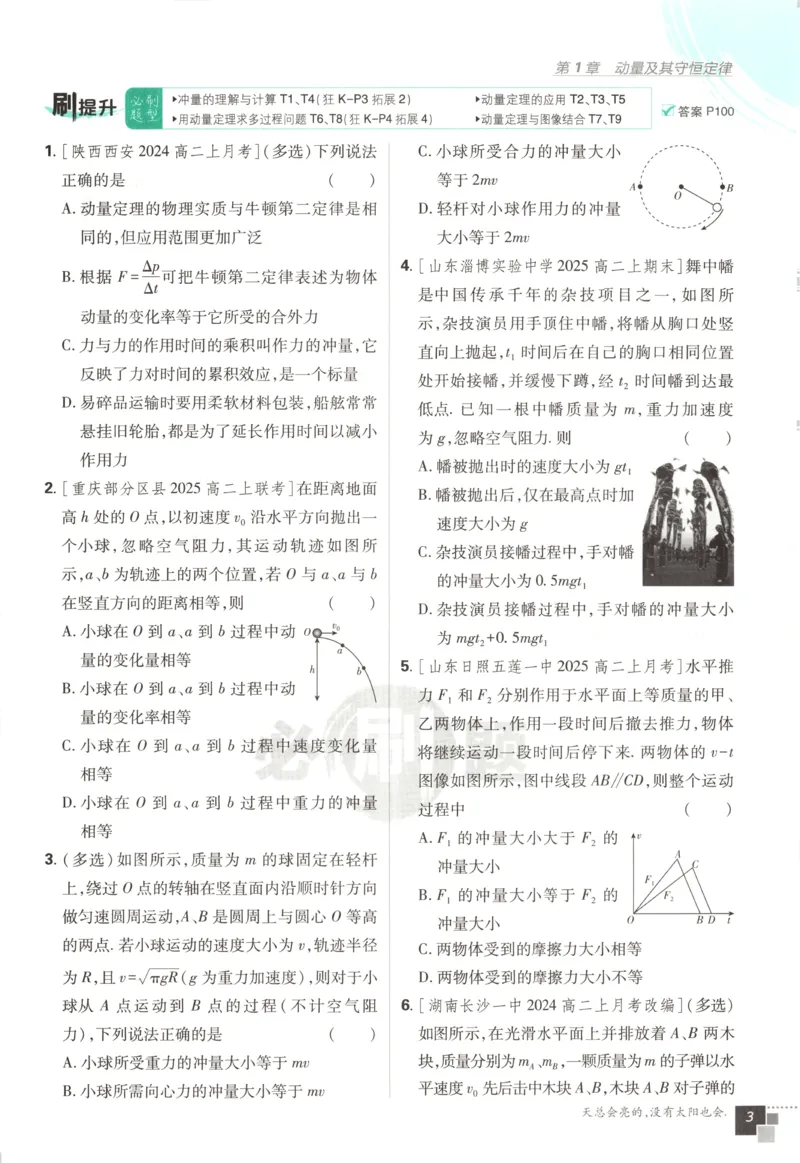 第1章 动量及其守恒定律
刷提升
必刷题型
▸冲量的理解与计算 T1、T4(狂 K-P3 拓展 2)
▸动量定理的应用 T2、T3、T5
▸用动量定理求多过程问题 T6、T8(狂 K-P4 拓展 4)
▸动量定理与图像结合 T7、T9
答案 P100
1. [陕西西安 2024 高二上月考](多选)下列说法
正确的是 ( )
A. 动量定理的物理实质与牛顿第二定律是相
同的,但应用范围更加广泛
B. 根据 F=Δp/Δt可把牛顿第二定律表述为物体
动量的变化率等于它所受的合外力
C. 力与力的作用时间的乘积叫作力的冲量,它
反映了力对时间的累积效应,是一个标量
D. 易碎品运输时要用柔软材料包装,船舷常常
悬挂旧轮胎,都是为了延长作用时间以减小
作用力
2. [重庆部分区县 2025 高二上联考]在距离地面
高 h 处的 O 点,以初速度 v₀ 沿水平方向抛出一
个小球,忽略空气阻力,其运动轨迹如图所
示,a、b 为轨迹上的两个位置,若 O 与 a、a 与 b
在竖直方向的距离相等,则 ( )
A. 小球在 O 到 a、a 到 b 过程中动
量的变化量相等
B. 小球在 O 到 a、a 到 b 过程中动
量的变化率相等
C. 小球在 O 到 a、a 到 b 过程中速度变化量
相等
D. 小球在 O 到 a、a 到 b 过程中重力的冲量
相等
O v₀
a
h b
3. (多选)如图所示,质量为 m 的球固定在轻杆
上,绕过 O 点的转轴在竖直面内沿顺时针方向
做匀速圆周运动,A、B 是圆周上与圆心 O 等高
的两点. 若小球运动的速度大小为 v,轨迹半径
为 R,且 v=√πgR(g 为重力加速度),则对于小
球从 A 点运动到 B 点的过程(不计空气阻
力),下列说法正确的是 ( )
A. 小球所受重力的冲量大小等于 mv
B. 小球所需向心力的冲量大小等于 mv
C. 小球所受合力的冲量大小
等于 2mv
D. 轻杆对小球作用力的冲量
大小等于 2mv
A O B
4. [山东淄博实验中学 2025 高二上期末]舞中幡
是中国传承千年的杂技项目之一,如图所
示,杂技演员用手顶住中幡,将幡从胸口处竖
直向上抛起,t₁ 时间后在自己的胸口相同位置
处开始接幡,并缓慢下蹲,经 t₂ 时间幡到达最
低点. 已知一根中幡质量为 m,重力加速度
为 g,忽略空气阻力. 则 ( )
A. 幡被抛出时的速度大小为 gt₁
B. 幡被抛出后,仅在最高点时加
速度大小为 g
C. 杂技演员接幡过程中,手对幡
的冲量大小为 0.5mgt₁
D. 杂技演员接幡过程中,手对幡的冲量大小
为 mgt₂+0.5mgt₁
5. [山东日照五莲一中 2025 高二上月考]水平推
力 F₁ 和 F₂ 分别作用于水平面上等质量的甲、
乙两物体上,作用一段时间后撤去推力,物体
将继续运动一段时间后停下来. 两物体的 v-t
图像如图所示,图中线段 AB∥CD,则整个运动
过程中 ( )
A. F₁ 的冲量大小大于 F₂ 的
冲量大小
B. F₁ 的冲量大小等于 F₂ 的
冲量大小
C. 两物体受到的摩擦力大小相等
D. 两物体受到的摩擦力大小不等
v
A
C
F₁
F₂
O B D t
6. [湖南长沙一中 2024 高二上月考改编](多选)
如图所示,在光滑水平面上并排放着 A、B 两木
块,质量分别为 m_A、m_B,一颗质量为 m 的子弹以水
平速度 v₀ 先后击中木块 A、B,木块 A、B 对子弹的
必刷题
天总会亮的,没有太阳也会.
3